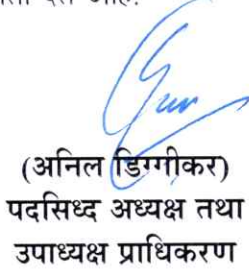 (अनिल डिग्गीकर)
पदसिध्द अध्यक्ष तथा
उपाध्यक्ष प्राधिकरण